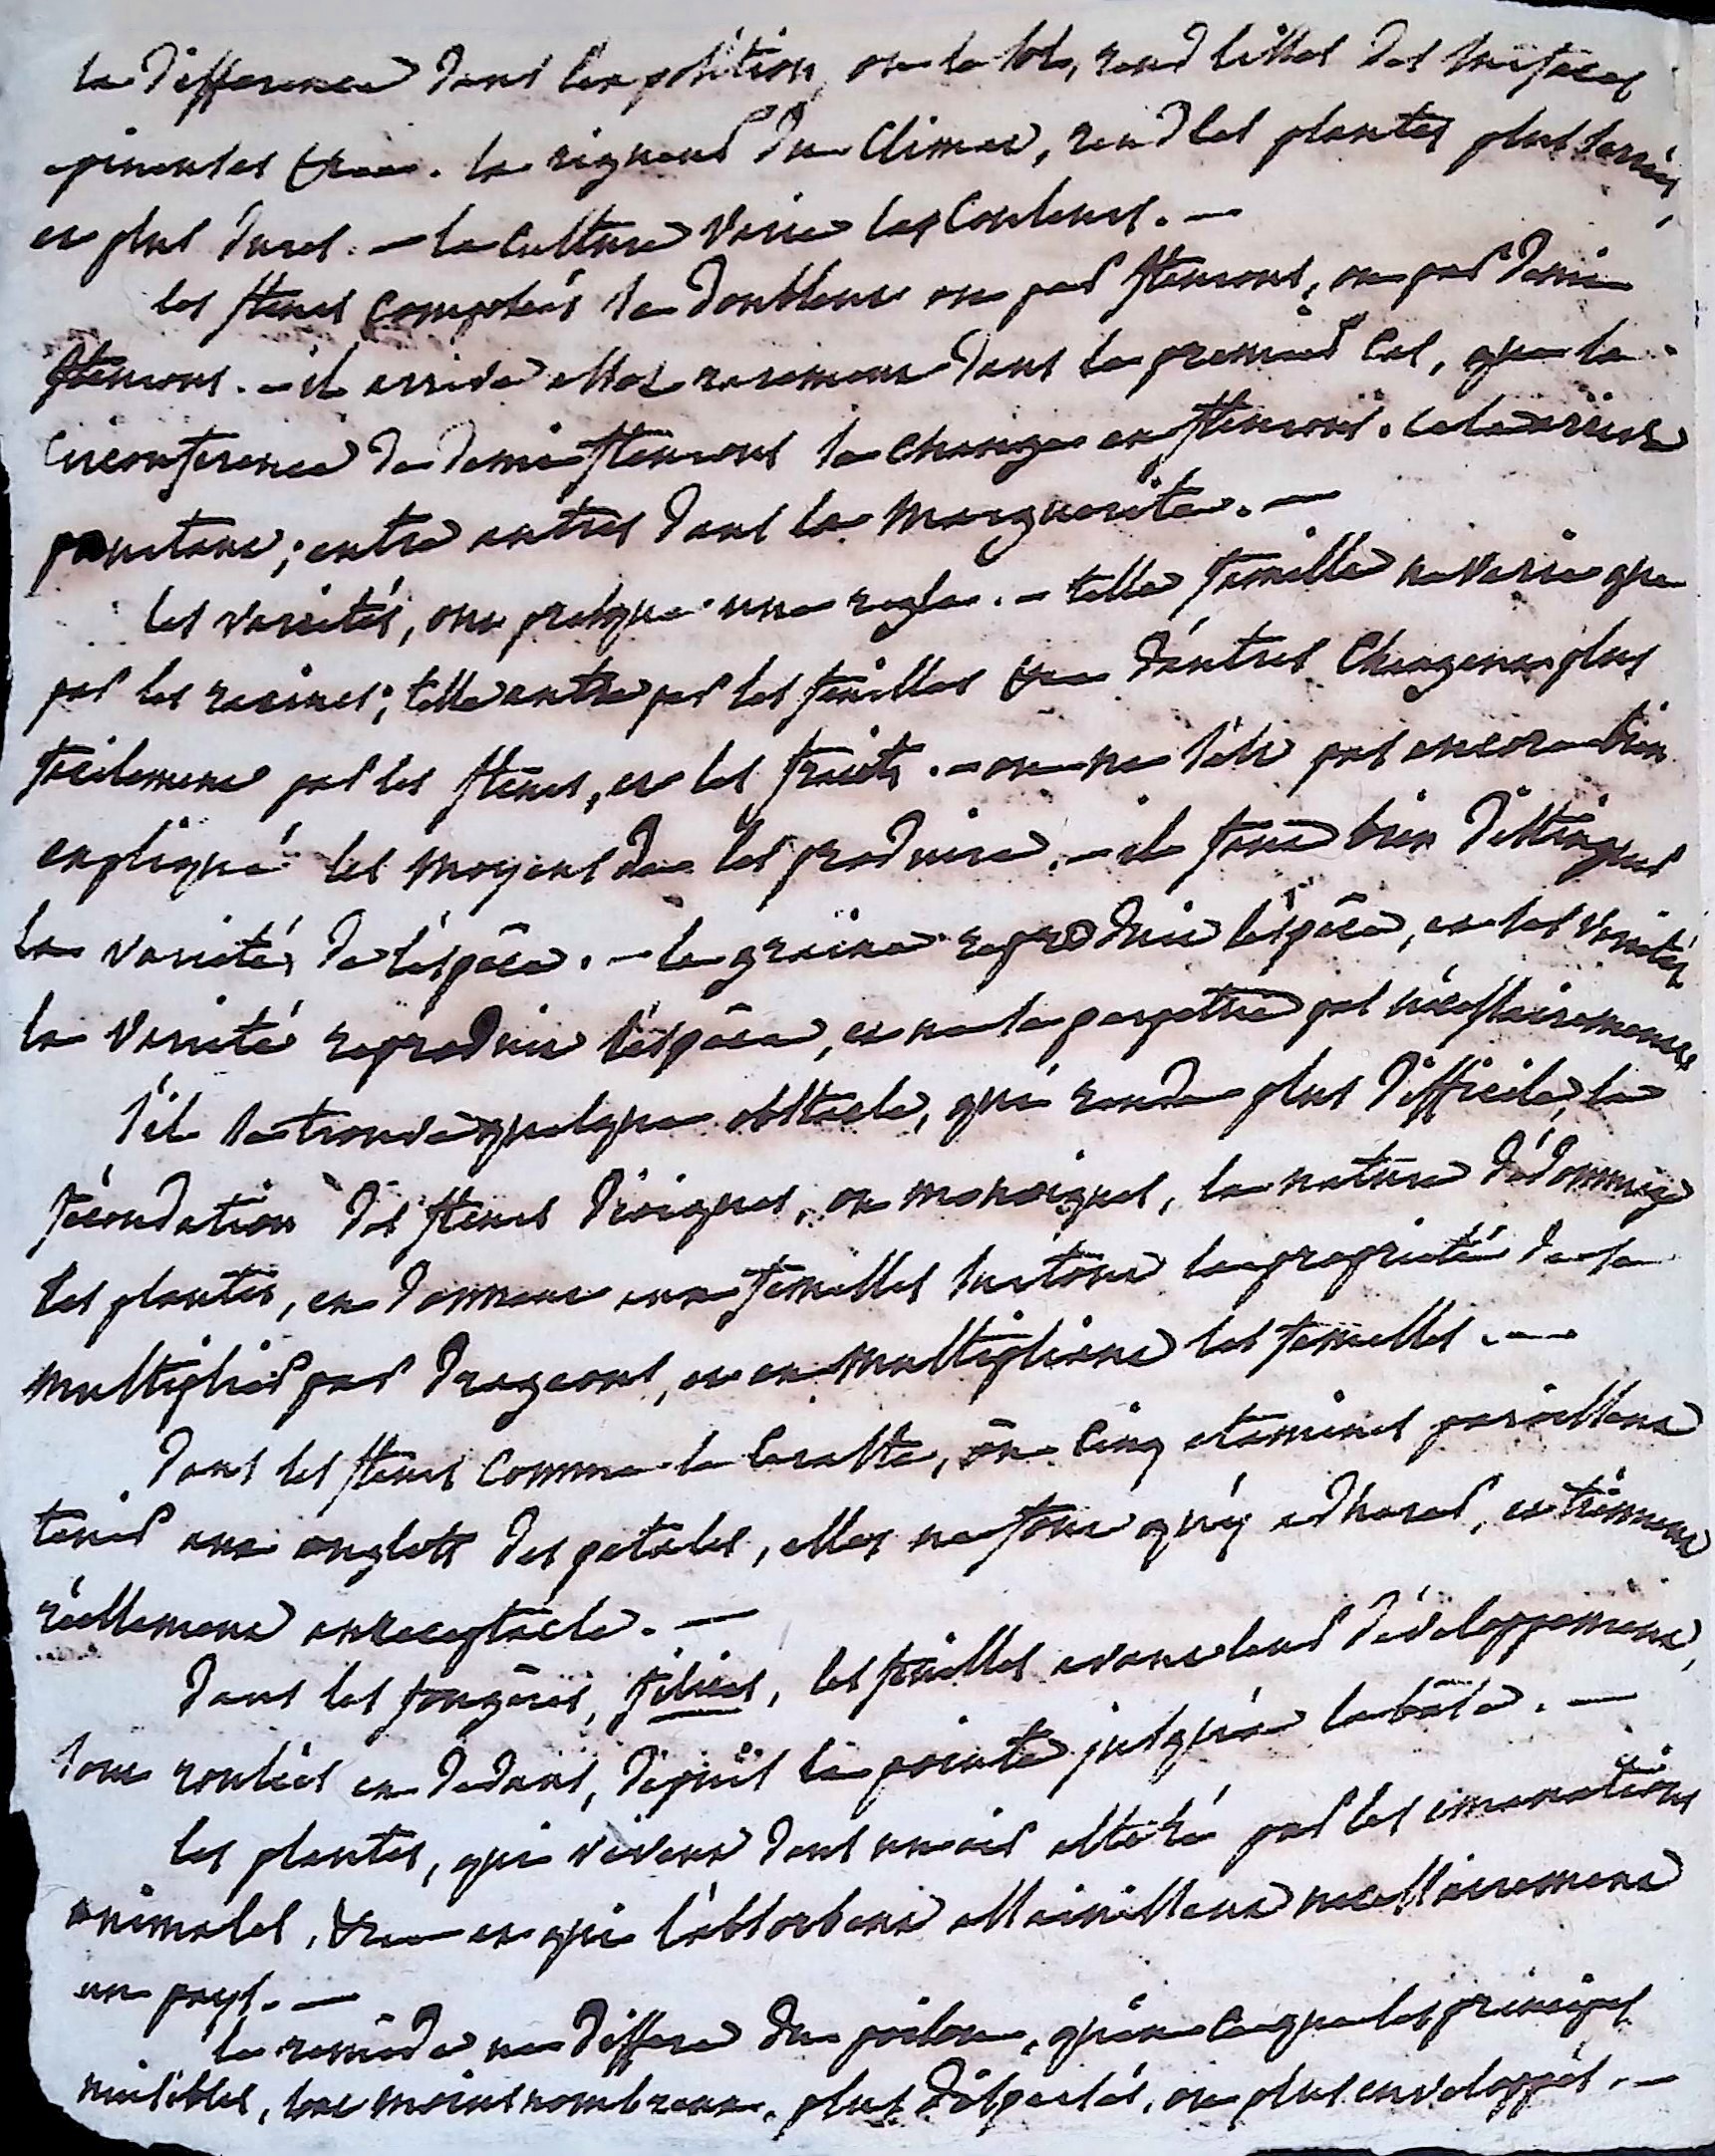 la difference dans l'exposition, ou le sol, rend lisses des surfaces
epineuses &c. la rigueur du climat, rend les plantes plus serrées,
et plus dures. — la culture varie les couleurs. —
les fleurs composées se doublent ou par fleurons, ou par demi
fleurons. — il arrive assez rarement dans le premier cas, que la
circonference de demi fleurons se change en fleurons. cela arrive
pourtant; entre autres dans la marguerite. —
les varietés, ont presque une regle. — telle famille ne varie que
par les racines; telle autre par les feuilles &c. d'autres changent plus
facilement par les fleurs, et les fruits. — on ne s'est pas encore bien
expliqué les moyens de les produire. — il faut bien distinguer
la varieté, de l'éspêce. — la graine reproduit l'éspêce, et les varietés,
la varieté reproduit l'éspêce, et ne la perpetue pas nécessairement.
s'il se trouve quelque obstacle, qui rende plus difficile, la
fécondation des fleurs dioiques, ou monoiques, la nature dédommage
les plantes, en donnant aux femelles surtout la proprieté de se
multiplier par drageons, et en multipliant les femelles. —
dans les fleurs comme le ceraste, où cinq etamines paroissent
tenir aux onglets des petales, elles ne font qu'y adherer, et tiennent
réellement au receptacle. —
dans les fougères, filices, les feuilles avant leur développement,
sont roulées en dedans, depuis la pointe jusqu'à la bâse. —
les plantes, qui vivent dans un air alteré par les emanations
animales, &c. et qui l'absorbent assainissent necessairement
un pays. —
le remède ne differe du poison, qu'en ce que les principes
nuisibles, sont moins nombreux, plus dispersés, ou plus enveloppés. —